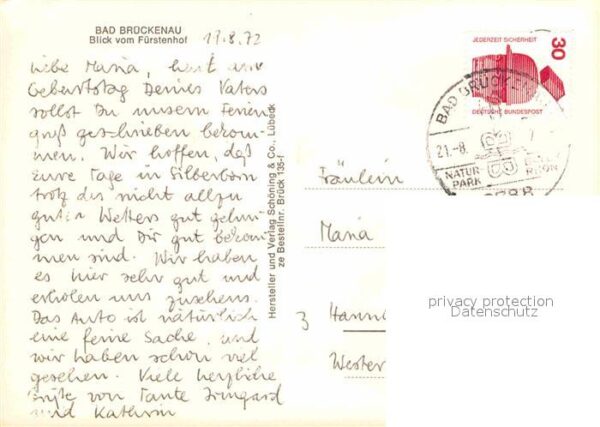 BAD BRÜCKENAU
Blick vom Fürstenhof
19.8.72
Liebe Maria, heut am
Geburtstag Deines Vaters
sollst Du unsern Ferien
gruß geschrieben bekom-
men. Wir hoffen, daß
Eure Tage in Silberborn
trotz des nicht allzu
guten Wetters gut gelun-
gen und Dir gut bekom-
men sind. Wir haben
es hier sehr gut und
erholen uns zusehens.
Das Auto ist natürlich
eine feine Sache, und
wir haben schon viel
gesehen. Viele herzliche
Grüße von Tante Irmgard
und Kathrin
Hersteller und Verlag Schöning & Co., Lübeck
ze Bestellnr. Brück 135-f
JEDERZEIT SICHERHEIT
30
DEUTSCHE BUNDESPOST
BAD BRÜCKEN
21.-8.
NATUR
PARK
RHÖN
Fräulein
Maria
3 Hann
Wester
privacy protection
Datenschutz